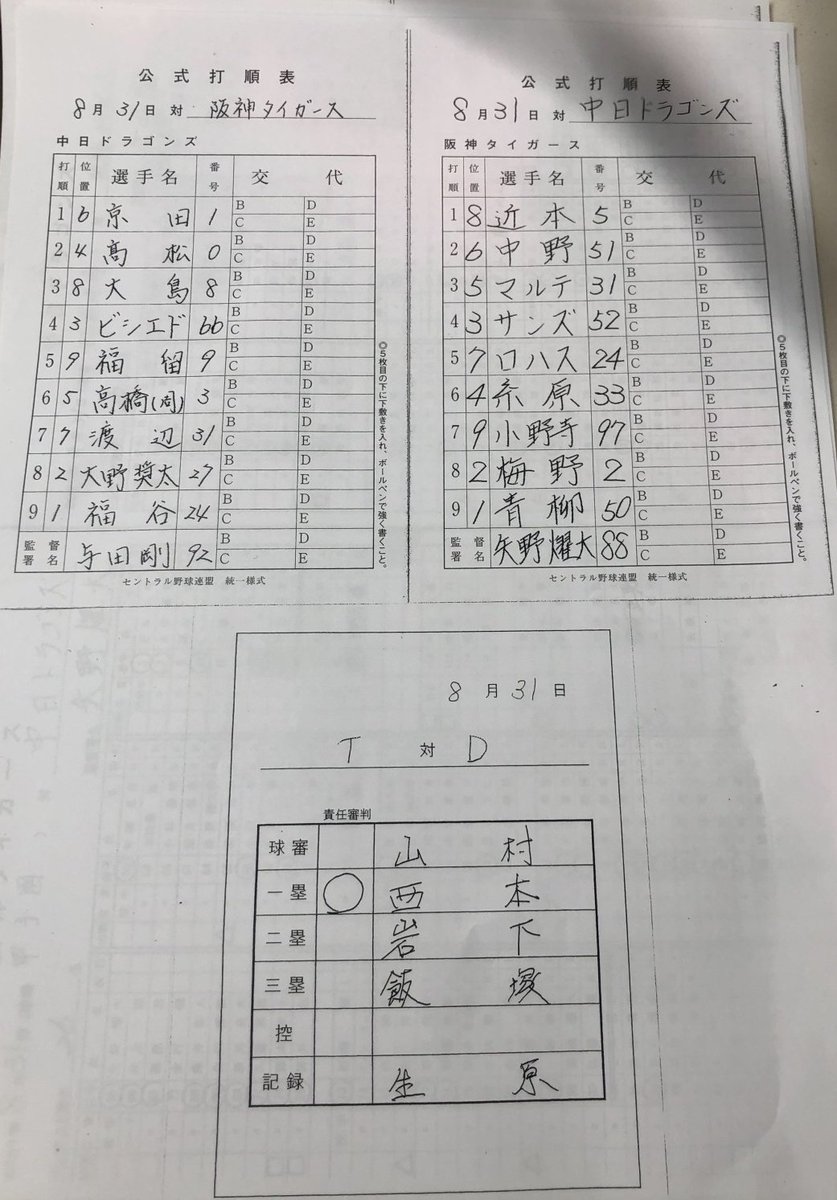 公式打順表
8月31日 対 阪神タイガース
中日ドラゴンズ
打順 位置 選手名 番号 交代
1 6 京田 1 B D C E
2 4 高松 0 B D C E
3 8 大島 8 B D C E
4 3 ビシエド 66 B D C E
5 9 福留 9 B D C E
6 5 高橋(周) 3 B D C E
7 7 渡辺 31 B D C E
8 2 大野奨太 27 B D C E
9 1 福谷 24 B D C E
監督署名 与田剛 92 B D C E
◎5枚目の下に下敷きを入れ、ボールペンで強く書くこと。
セントラル野球連盟 統一様式
公式打順表
8月31日 対 中日ドラゴンズ
阪神タイガース
打順 位置 選手名 番号 交代
1 8 近本 5 B D C E
2 6 中野 51 B D C E
3 5 マルテ 31 B D C E
4 3 サンズ 52 B D C E
5 7 ロハス 24 B D C E
6 4 糸原 33 B D C E
7 9 小野寺 97 B D C E
8 2 梅野 2 B D C E
9 1 青柳 50 B D C E
監督署名 矢野燿大 88 B D C E
◎5枚目の下に下敷きを入れ、ボールペンで強く書くこと。
セントラル野球連盟 統一様式
8月31日
T 対 D
責任審判
球審 山村
一塁 ○ 西本
二塁 岩下
三塁 飯塚
控
記録 生原